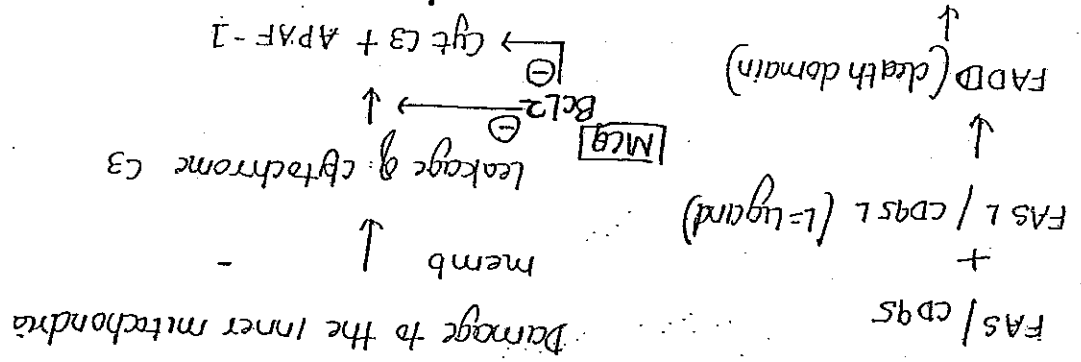 FAS / CD95
+
FAS L / CD95 L (L=Ligand)
↓
FADD (death domain)
↓
Damage to the inner mitochondria
memb ↓ -
Leakage of cytochrome C3
MCQ
BCL2 ⊖ ↓
⊖ Cyt C3 + APAF-1